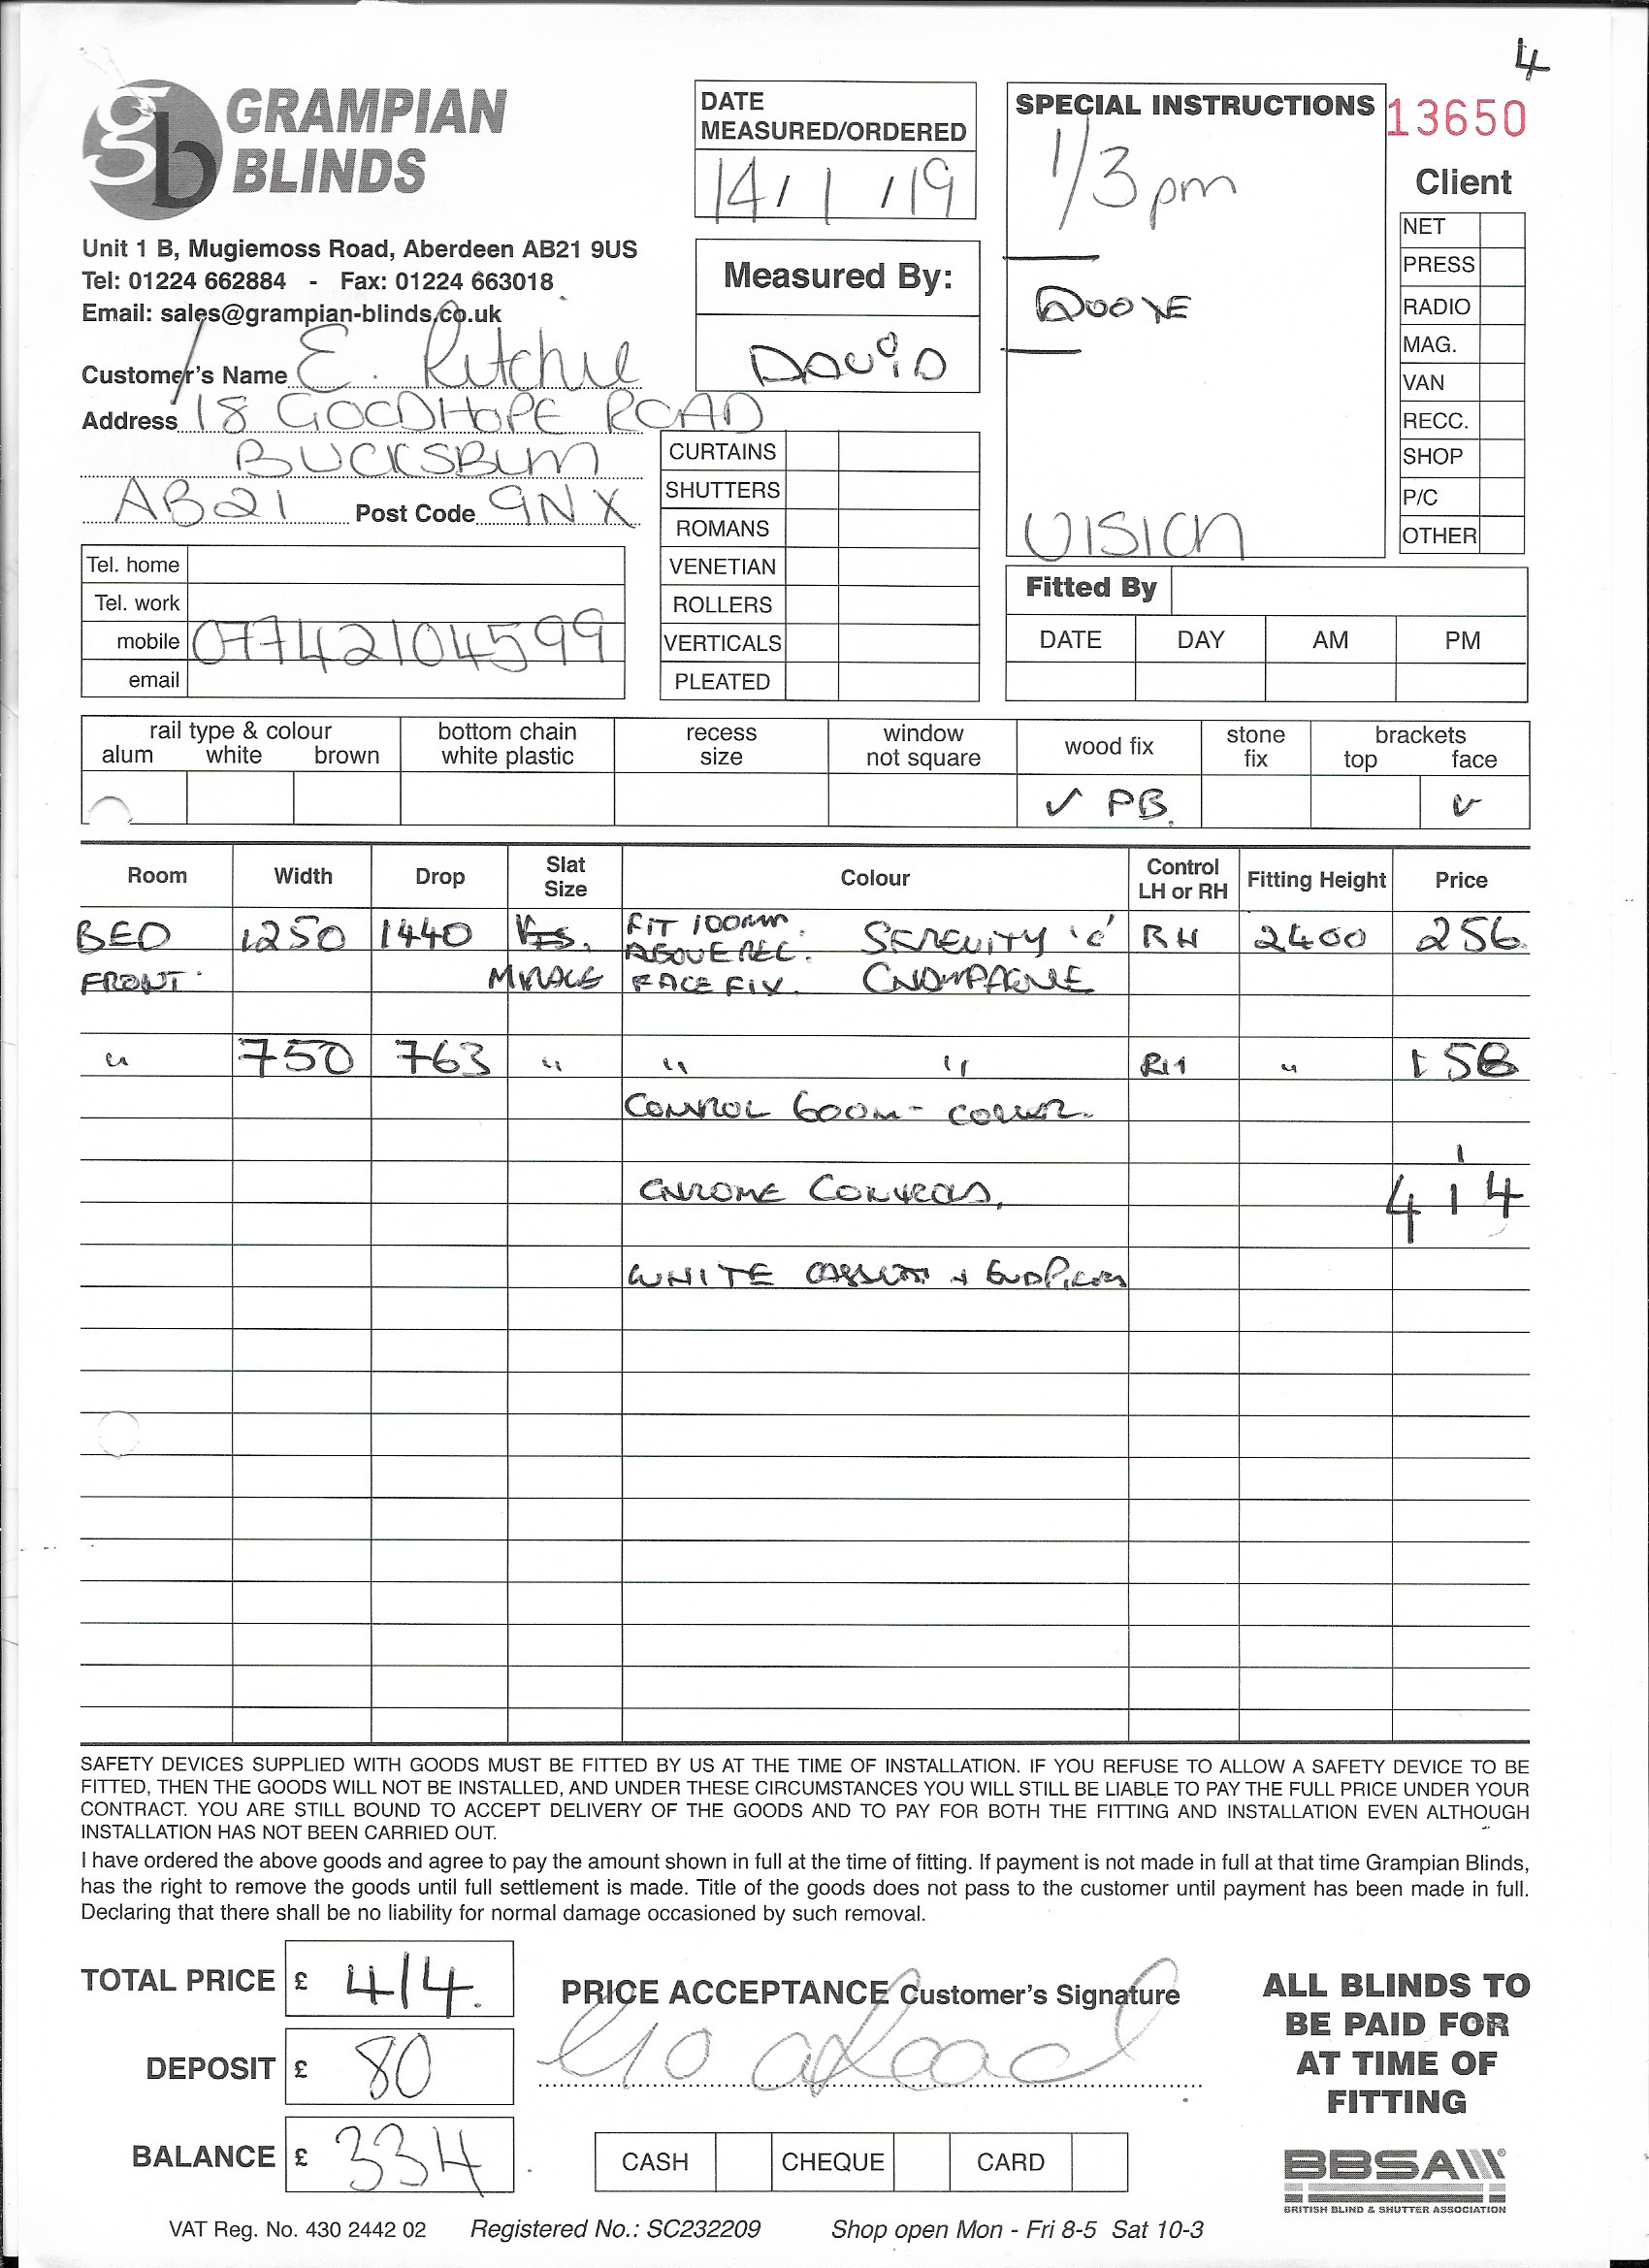 4
GRAMPIAN
BLINDS
Unit 1 B, Mugiemoss Road, Aberdeen AB21 9US
Tel: 01224 662884 - Fax: 01224 663018
Email: sales@grampian-blinds.co.uk
Customer's Name E. Ritchie
Address 18 GOODHOPE ROAD
BUCKSBURN
AB21 Post Code 9NX
Tel. home
Tel. work
mobile 07742104599
email
DATE
MEASURED/ORDERED
14/1/19
Measured By:
DAVID
CURTAINS
SHUTTERS
ROMANS
VENETIAN
ROLLERS
VERTICALS
PLEATED
SPECIAL INSTRUCTIONS
1/3pm
VISION
13650
Client
NET
PRESS
RADIO
MAG.
VAN
RECC.
SHOP
P/C
OTHER
Fitted By
DATE DAY AM PM
rail type & colour
alum white brown
bottom chain
white plastic
recess
size
window
not square
wood fix
stone
fix
brackets
top face
✓ PB. ✓
Room Width Drop Slat Size Colour Control LH or RH Fitting Height Price
BED 1250 1440 FIT 100mm SERENITY 'C' RH 2400 256
ABOVE REC.
FRONT MIRAGE FACE FIX. CHAMPAGNE
" 750 763 " " " RH " 158
CONTROL 600m- COLOUR.
1
CHROME CONTROLS, 414
WHITE CASSETTE + ENDPIECES
SAFETY DEVICES SUPPLIED WITH GOODS MUST BE FITTED BY US AT THE TIME OF INSTALLATION. IF YOU REFUSE TO ALLOW A SAFETY DEVICE TO BE
FITTED, THEN THE GOODS WILL NOT BE INSTALLED, AND UNDER THESE CIRCUMSTANCES YOU WILL STILL BE LIABLE TO PAY THE FULL PRICE UNDER YOUR
CONTRACT. YOU ARE STILL BOUND TO ACCEPT DELIVERY OF THE GOODS AND TO PAY FOR BOTH THE FITTING AND INSTALLATION EVEN ALTHOUGH
INSTALLATION HAS NOT BEEN CARRIED OUT.
I have ordered the above goods and agree to pay the amount shown in full at the time of fitting. If payment is not made in full at that time Grampian Blinds,
has the right to remove the goods until full settlement is made. Title of the goods does not pass to the customer until payment has been made in full.
Declaring that there shall be no liability for normal damage occasioned by such removal.
TOTAL PRICE £ 414.
DEPOSIT £ 80
BALANCE £ 334
PRICE ACCEPTANCE Customer's Signature
Go ahead
CASH CHEQUE CARD
ALL BLINDS TO
BE PAID FOR
AT TIME OF
FITTING
BBSA
BRITISH BLIND & SHUTTER ASSOCIATION
VAT Reg. No. 430 2442 02 Registered No.: SC232209 Shop open Mon - Fri 8-5 Sat 10-3